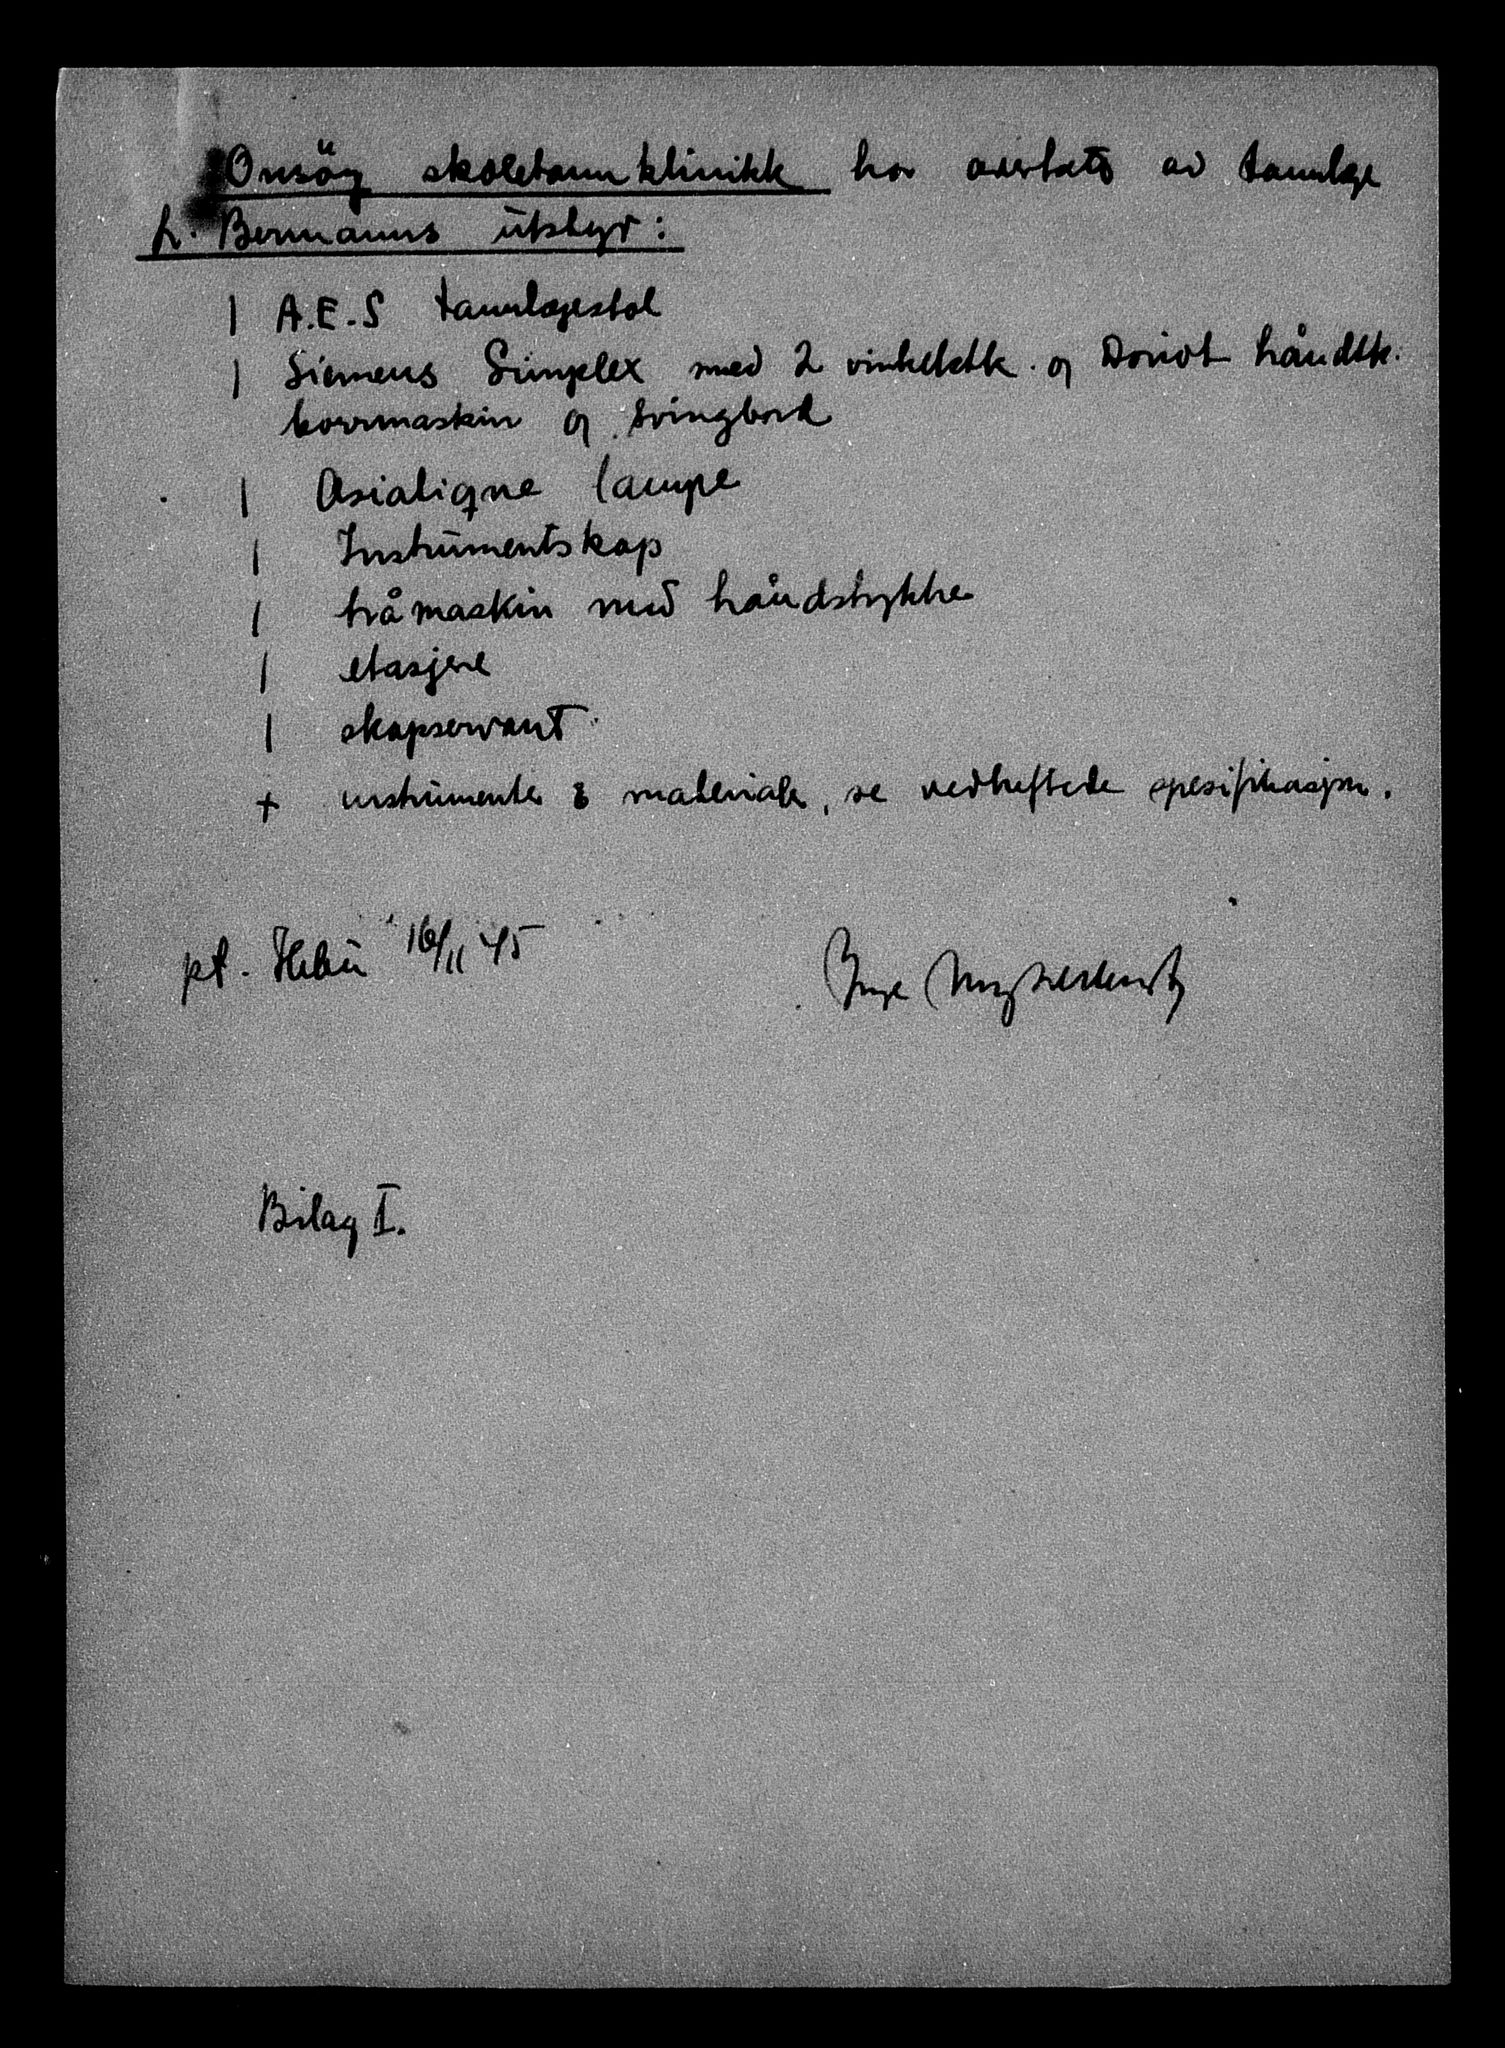 Onsöy skoletannklinikk har overtatt av tannlege
L. Bermanns utstyr:
1 A.E.S tannlegestol
1 Siemens Simplex med 2 vinkelstk. og Doriot håndstk.
borrmaskin og svingbord
1 Asialigne lampe
1 Instrumentskap
1 tråmaskin med håndstykke
1 etasjere
1 skapservant
+ instrumenter & materialer, se vedheftede spesifikasjon.
pt. 16/11 45
Inge
Bilag I.